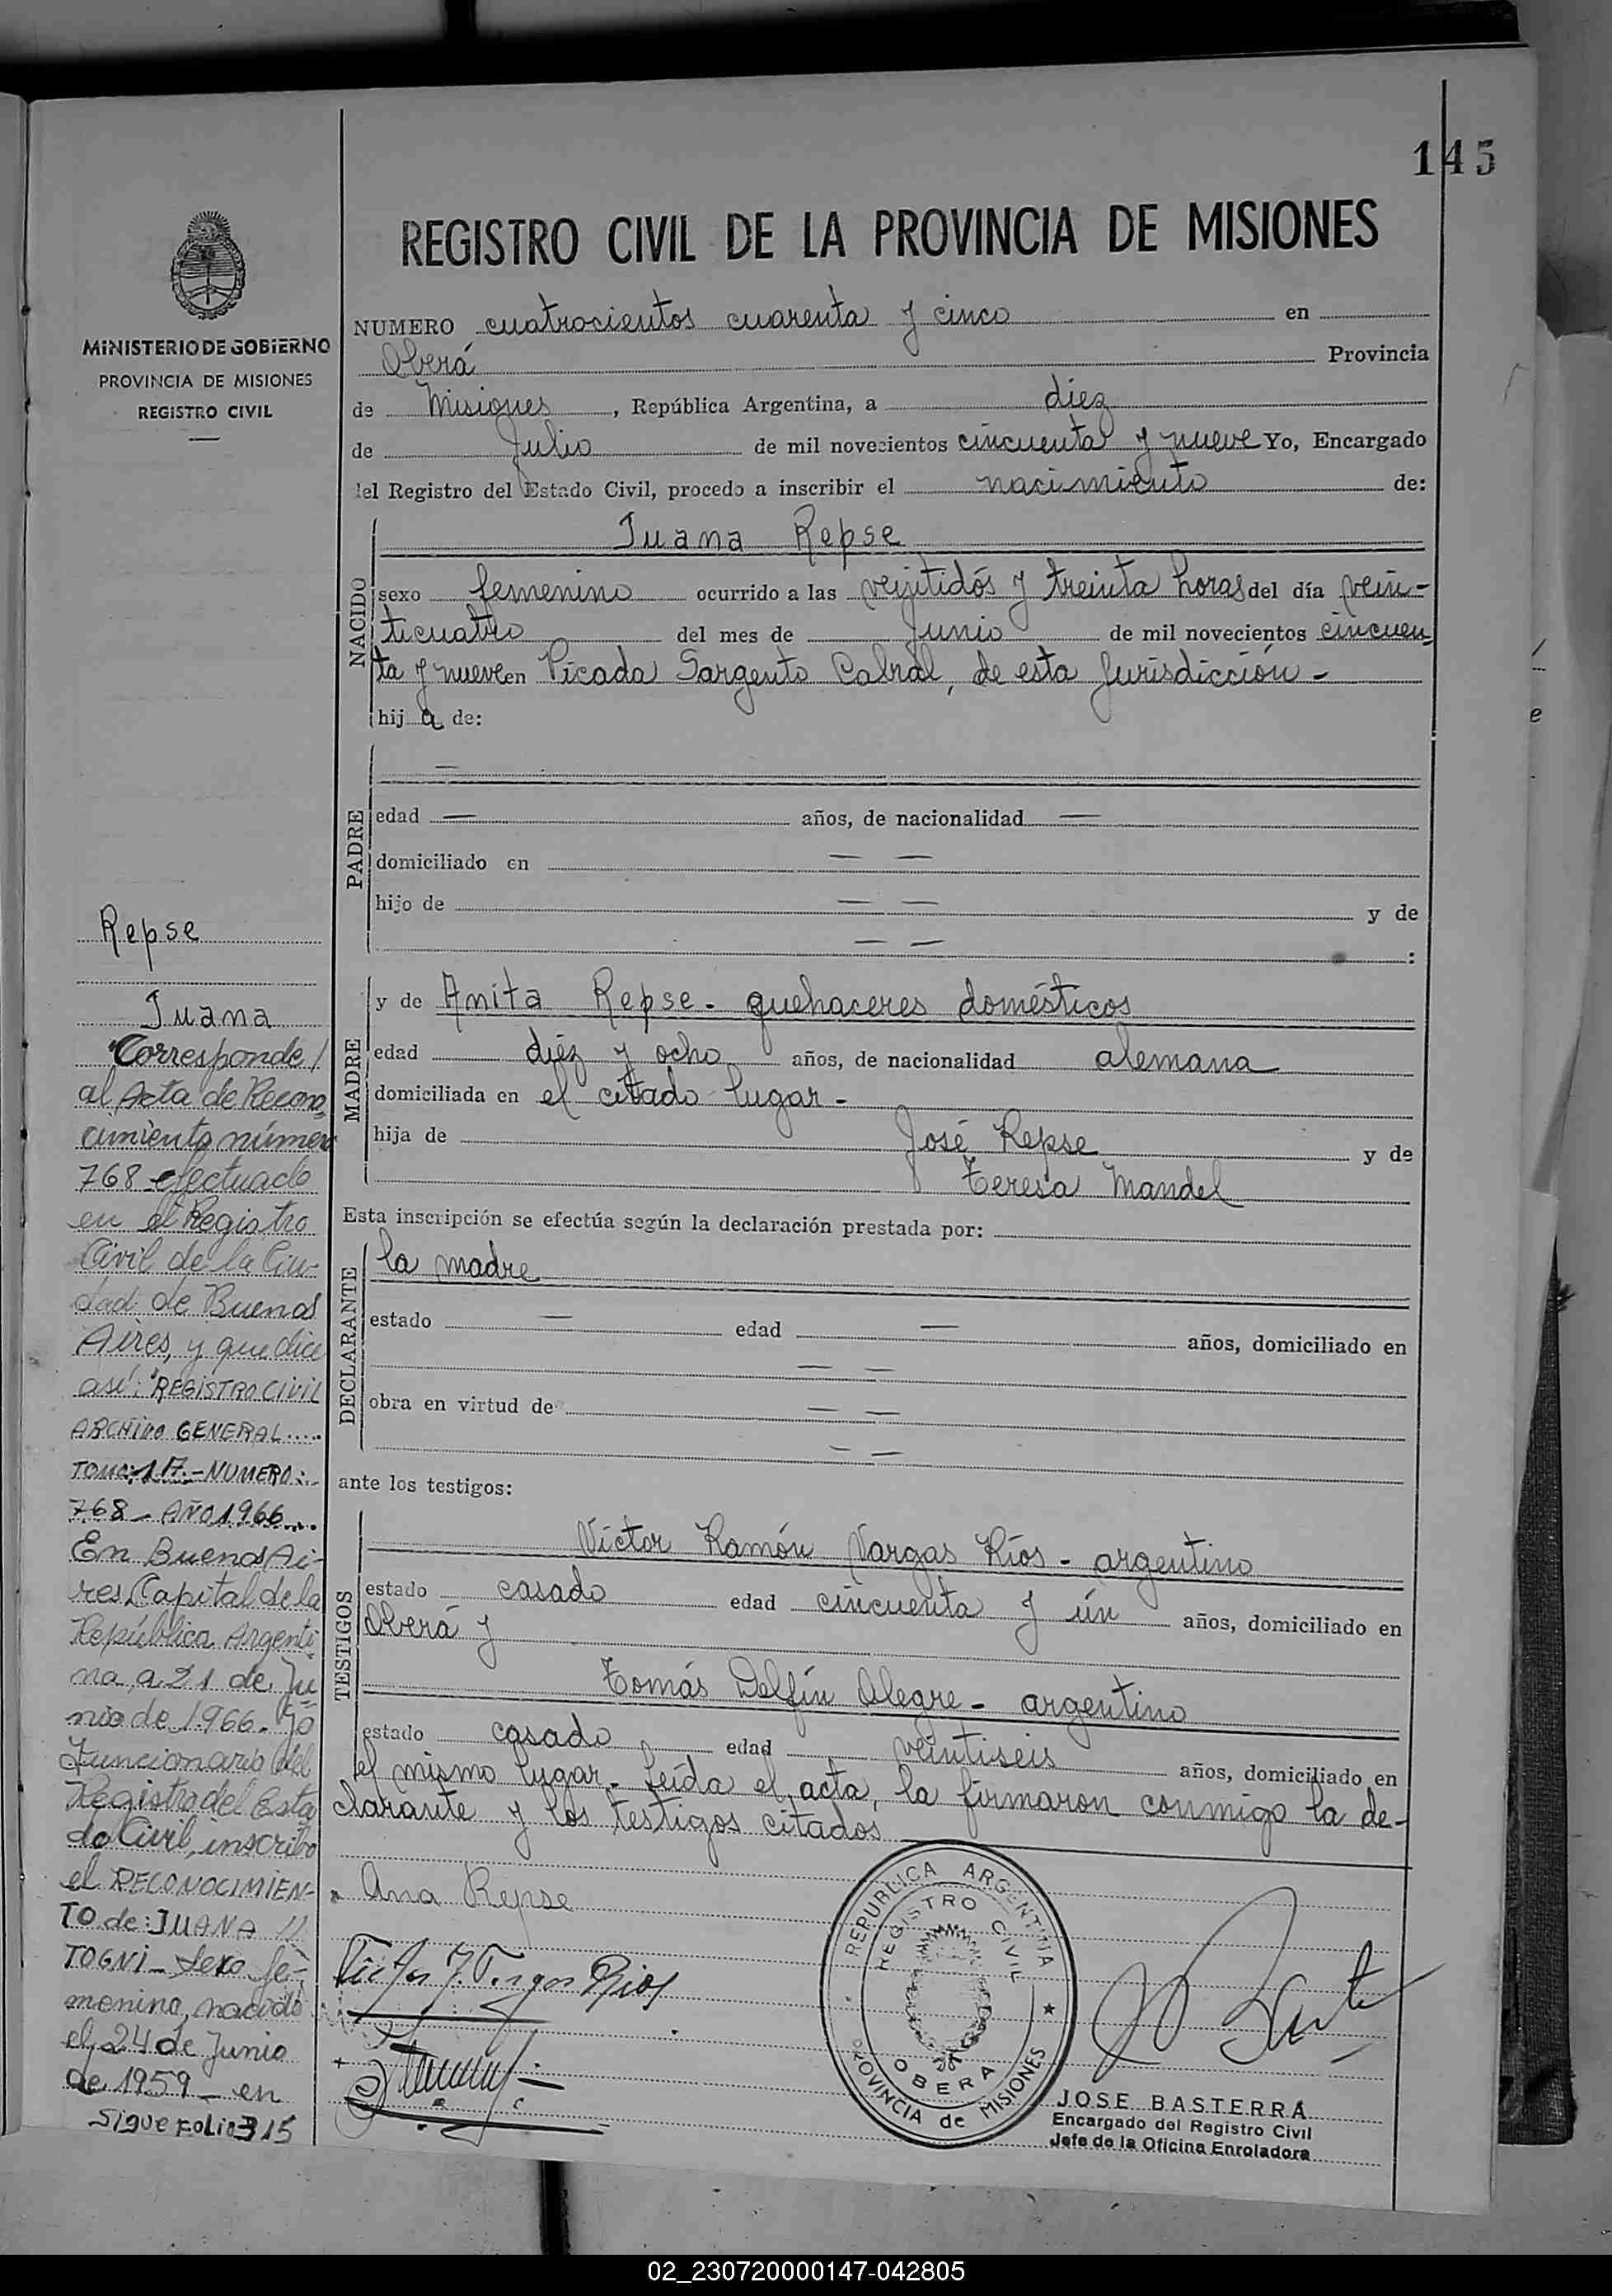 145
REGISTRO CIVIL DE LA PROVINCIA DE MISIONES
MINISTERIO DE GOBIERNO
PROVINCIA DE MISIONES
REGISTRO CIVIL
NUMERO cuatrocientos cuarenta y cinco en
Oberá Provincia
de Misiones, República Argentina, a diez
de Julio de mil novecientos cincuenta y nueve Yo, Encargado
del Registro del Estado Civil, procedo a inscribir el nacimiento de:
NACIDO
Juana Repse
sexo femenino ocurrido a las veintidós y treinta horas del día vein-
ticuatro del mes de Junio de mil novecientos cincuen-
ta y nueve en Picada Sargento Cabral, de esta Jurisdicción -
hija de:
PADRE
—
edad — años, de nacionalidad —
domiciliado en — —
hijo de — — y de
— — :
MADRE
y de Anita Repse - quehaceres domésticos
edad diéz y ocho años, de nacionalidad alemana
domiciliada en el citado lugar -
hija de José Repse y de
Teresa Mandel
Esta inscripción se efectúa según la declaración prestada por:
DECLARANTE
la madre
estado — edad — años, domiciliado en
— —
obra en virtud de — —
— —
ante los testigos:
TESTIGOS
Víctor Ramón Vargas Ríos - argentino
estado casado edad cincuenta y ún años, domiciliado en
Oberá y
Tomás Delfín Alegre - argentino
estado casado edad veintiseis años, domiciliado en
el mismo lugar. Leída el acta, la firmaron conmigo la de-
clarante y los testigos citados
Ana Repse
Victor R. Vargas Rios
REPUBLICA ARGENTINA
REGISTRO CIVIL
OBERA
PROVINCIA de MISIONES
JOSE BASTERRA
Encargado del Registro Civil
Jefe de la Oficina Enroladora
Repse
Juana
"Corresponde/
al Acta de Recono-
cimiento número
768 efectuado
en el Registro
Civil de la Ciu-
dad de Buenos
Aires, y que dice
así: "REGISTRO CIVIL
ARCHIVO GENERAL....
TOMO: 1 A.- NUMERO:
768 - AÑO 1966....
En Buenos Ai-
res, Capital de la
República Argenti-
na, a 21 de Ju
nio de 1966. Yo
Funcionario del
Registro del Esta
do Civil, inscribo
el RECONOCIMIEN-
TO de: JUANA //
TOGNI - sexo fe-
menino, nacido
el 24 de Junio
de 1959 - en
SIGUE FOLIO 315
02_230720000147-042805